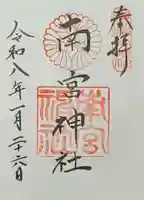 奉拝
南宮神社
令和八年一月二十六日